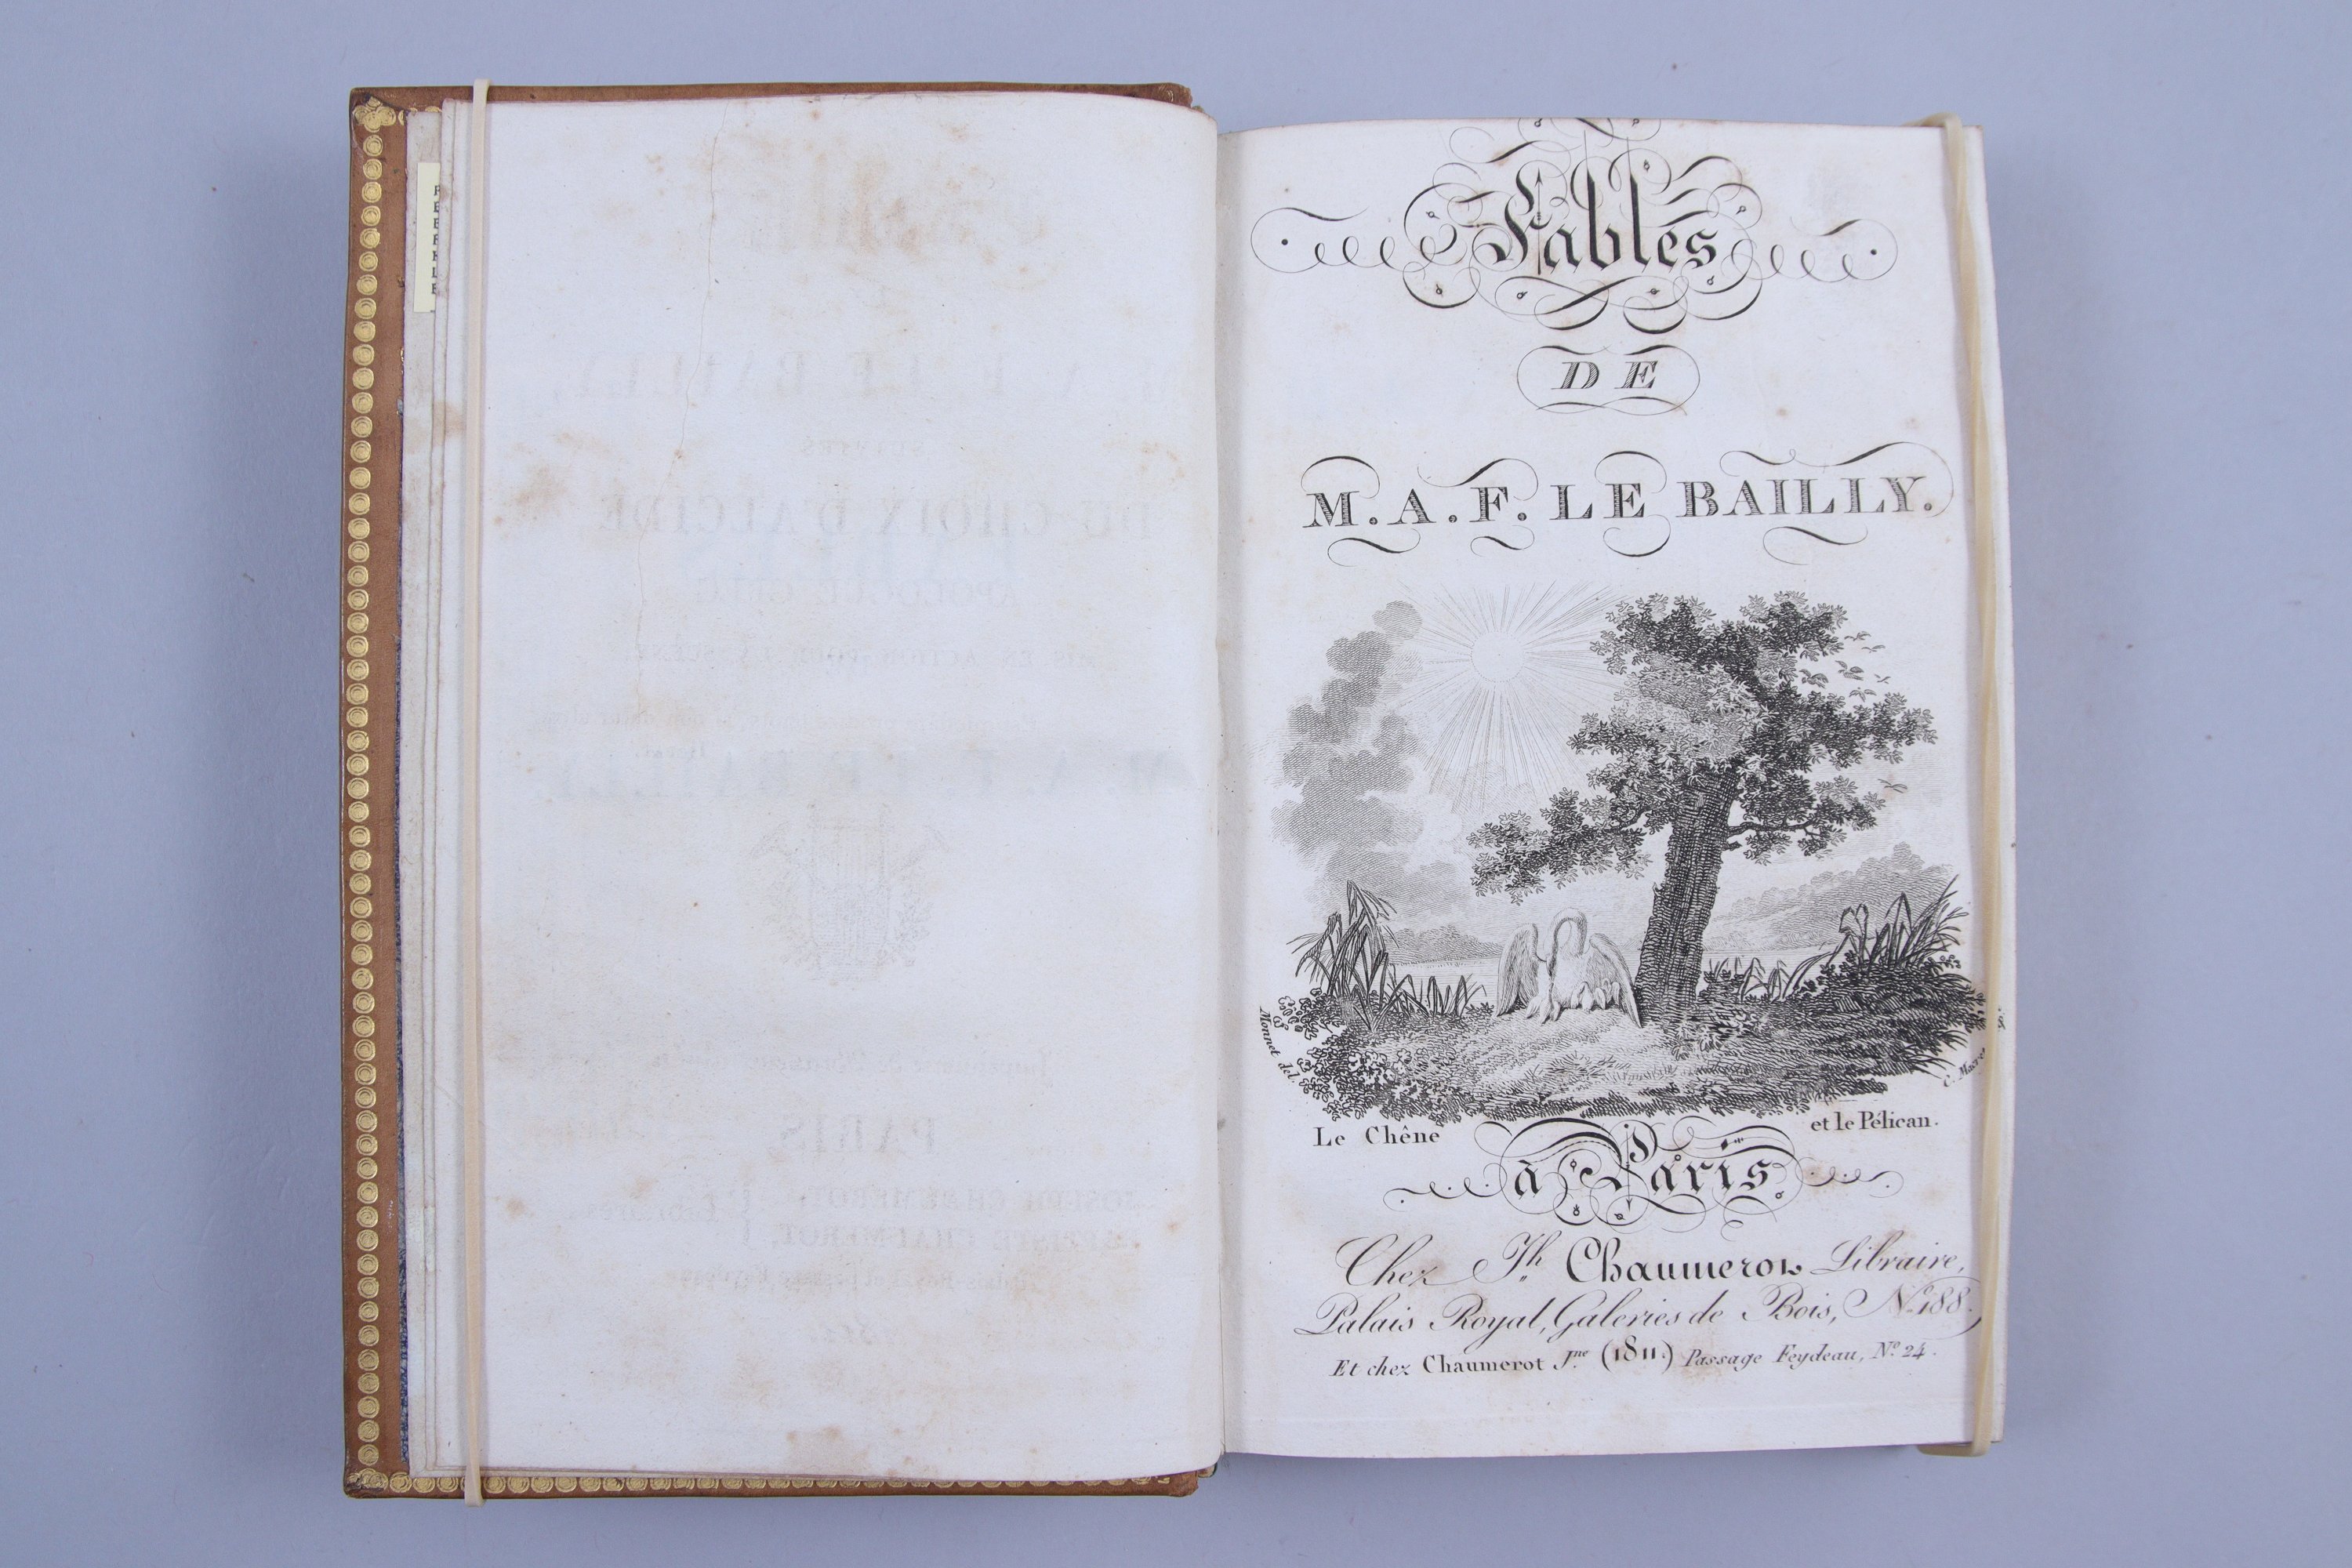 Fables
DE
M. A. F. LE BAILLY.
Monnet del.
Le Chêne et le Pélican.
à Paris
Chez Jh. Chaumerot Libraire,
Palais Royal, Galeries de Bois, No. 188.
Et chez Chaumerot Jne. (1811.) Passage Feydeau, No. 24.